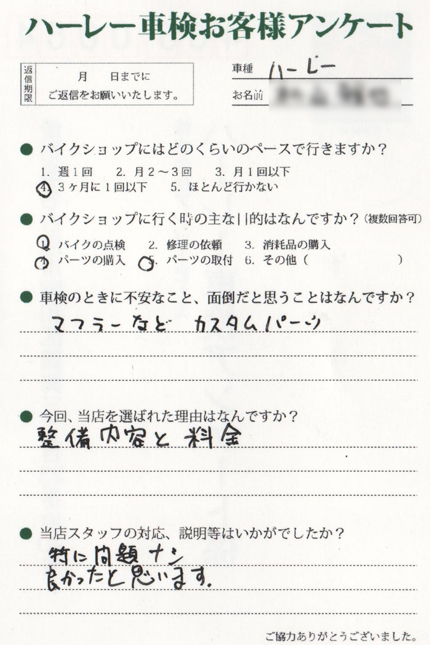 ハーレー車検お客様アンケート
返信期限
月　日までに
ご返信をお願いいたします。
車種 ハーレー
お名前
● バイクショップにはどのくらいのペースで行きますか？
1. 週1回　2. 月2～3回　3. 月1回以下
4. 3ヶ月に1回以下　5. ほとんど行かない
● バイクショップに行く時の主な目的はなんですか？（複数回答可）
1. バイクの点検　2. 修理の依頼　3. 消耗品の購入
4. パーツの購入　5. パーツの取付　6. その他（　　　　　　）
● 車検のときに不安なこと、面倒だと思うことはなんですか？
マフラーなど カスタムパーツ
● 今回、当店を選ばれた理由はなんですか？
整備内容と料金
● 当店スタッフの対応、説明等はいかがでしたか？
特に問題ナシ
良かったと思います。
ご協力ありがとうございました。